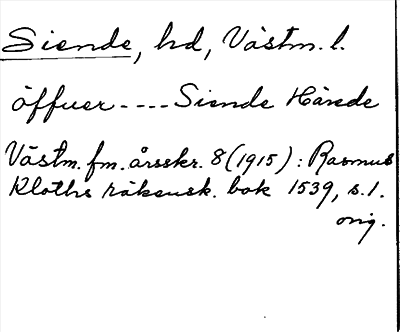 Siende, hd, Västm. l.
öffuer----Siende Hårede
Västm. fm. årsskr. 8 (1915): Rasmus
Kloths räkensk. bok 1539, s. 1.
orig.